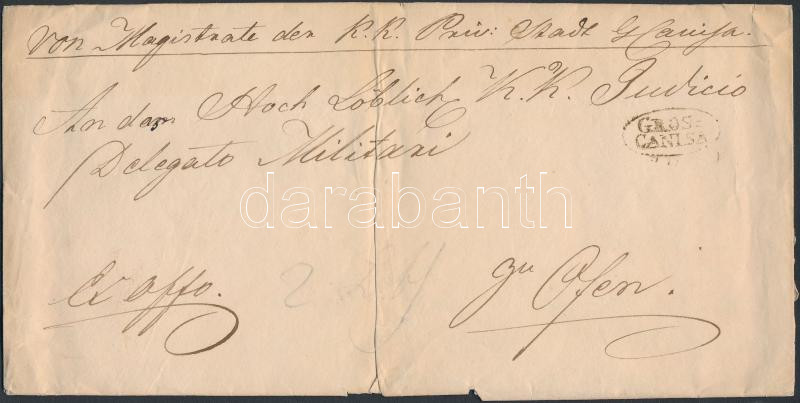 Von Magistrate der K. K. Priv: Stadt G Canisa.
An dem Hoch Löblich K. K. Judicio
GROS-
CANISA
Delegato Militari
darabanth
Ex offo.
zu Ofen.